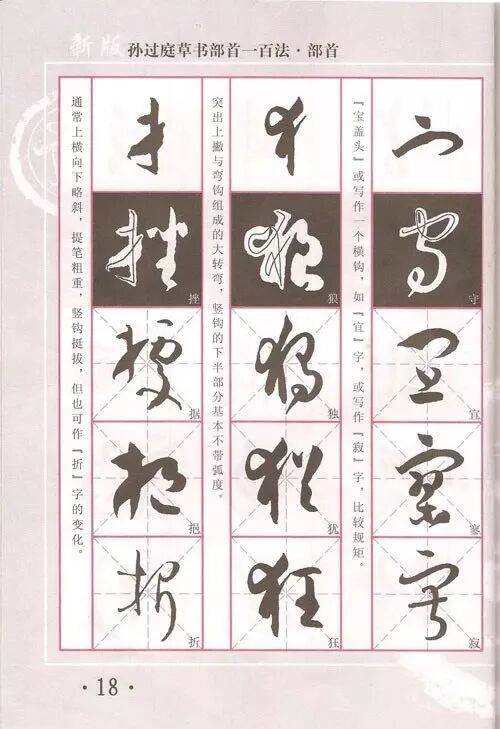 新版 孙过庭草书部首一百法·部首
『宝盖头』或写作一个横钩，如『宜』字，或写作『寂』字，比较规矩。
守
宜
寒
寂
突出上撇与弯钩组成的大转弯，竖钩的下半部分基本不带弧度。
狠
独
犹
狂
通常上横向下略斜，提笔粗重，竖钩挺拔，但也可作『折』字的变化。
挫
据
挹
折
·18·